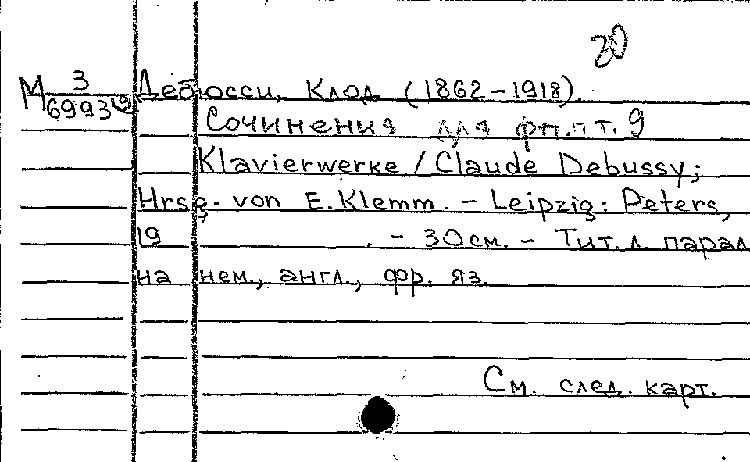 30
М 3 Дебюсси, Клод (1862-1918).
6993
Сочинения для фп. т. 9
Klavierwerke / Claude Debussy;
Hrsg. von E. Klemm. - Leipzig: Peters,
19 . - 30 см. - Тит. л. парал.
на нем., англ., фр. яз.
См. след. карт.